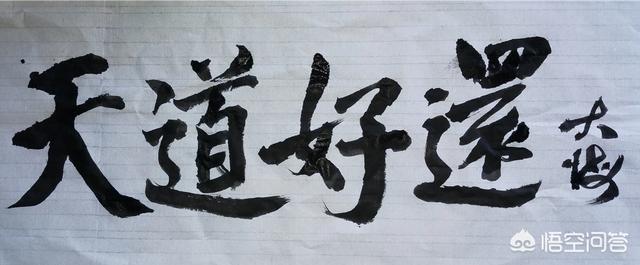 天道好還
大海
悟空问答